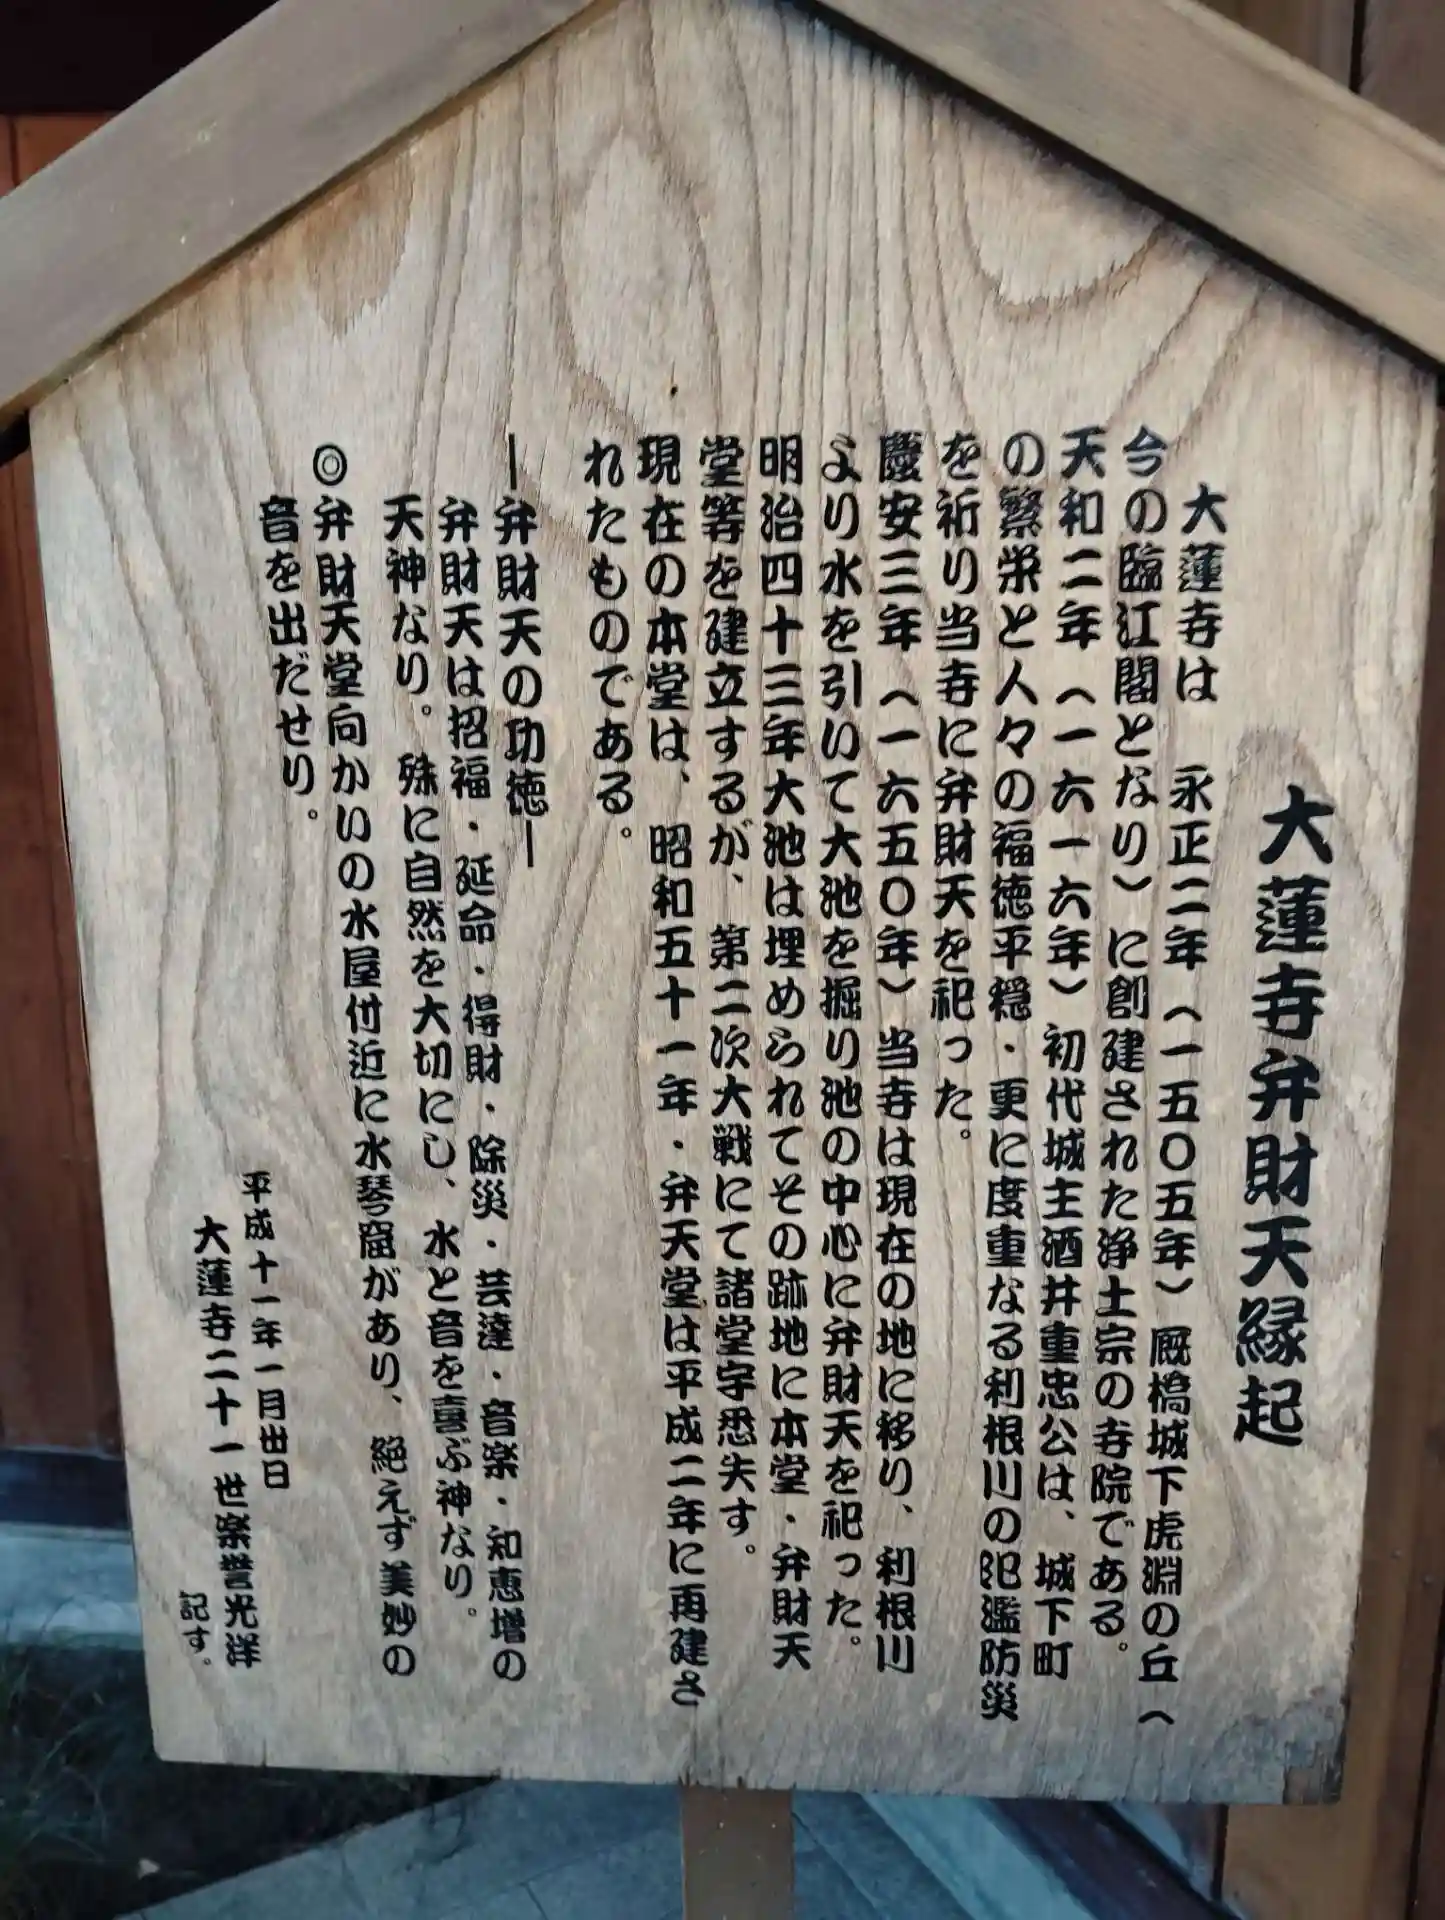 大蓮寺弁財天縁起
大蓮寺は 永正二年(一五〇五年)厩橋城下虎淵の丘(
今の臨江閣となり)に創建された浄土宗の寺院である。
天和二年(一六一六年)初代城主酒井重忠公は、城下町
の繁栄と人々の福徳平穏・更に度重なる利根川の氾濫防災
を祈り当寺に弁財天を祀った。
慶安三年(一六五〇年)当寺は現在の地に移り、利根川
より水を引いて大池を掘り池の中心に弁財天を祀った。
明治四十三年大池は埋められてその跡地に本堂・弁財天
堂等を建立するが、第二次大戦にて諸堂宇悉失す。
現在の本堂は、昭和五十一年・弁天堂は平成二年に再建さ
れたものである。
―弁財天の功徳―
弁財天は招福・延命・得財・除災・芸達・音楽・知恵増の
天神なり。殊に自然を大切にし、水と音を喜ぶ神なり。
◎弁財天堂向かいの水屋付近に水琴窟があり、絶えず美妙の
音を出だせり。
平成十一年一月卋日
大蓮寺二十一世楽誉光洋
記す。